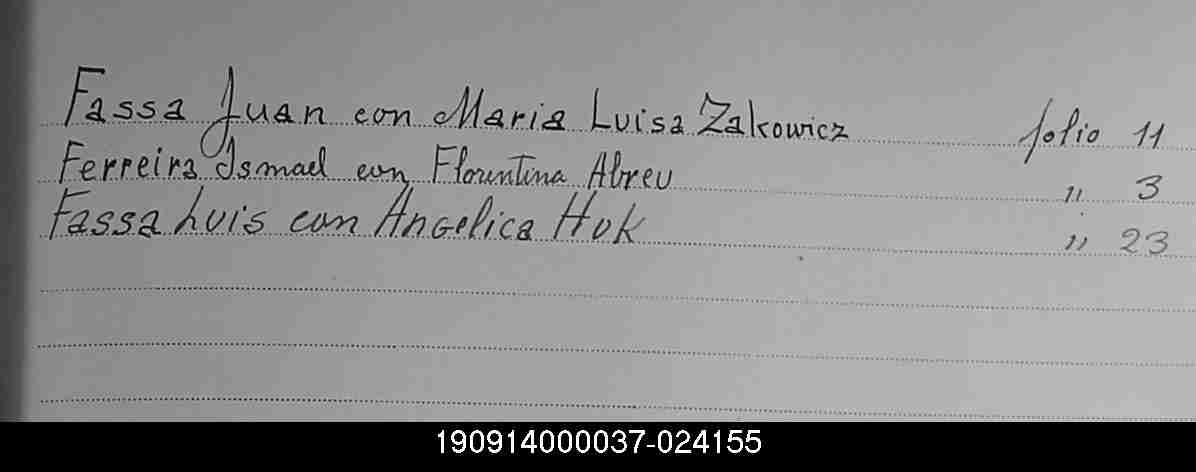 Fassa Juan con Maria Luisa Zakowicz folio 11
Ferreira Ismael con Florentina Abreu " 3
Fassa Luis con Angelica Huk " 23
190914000037-024155